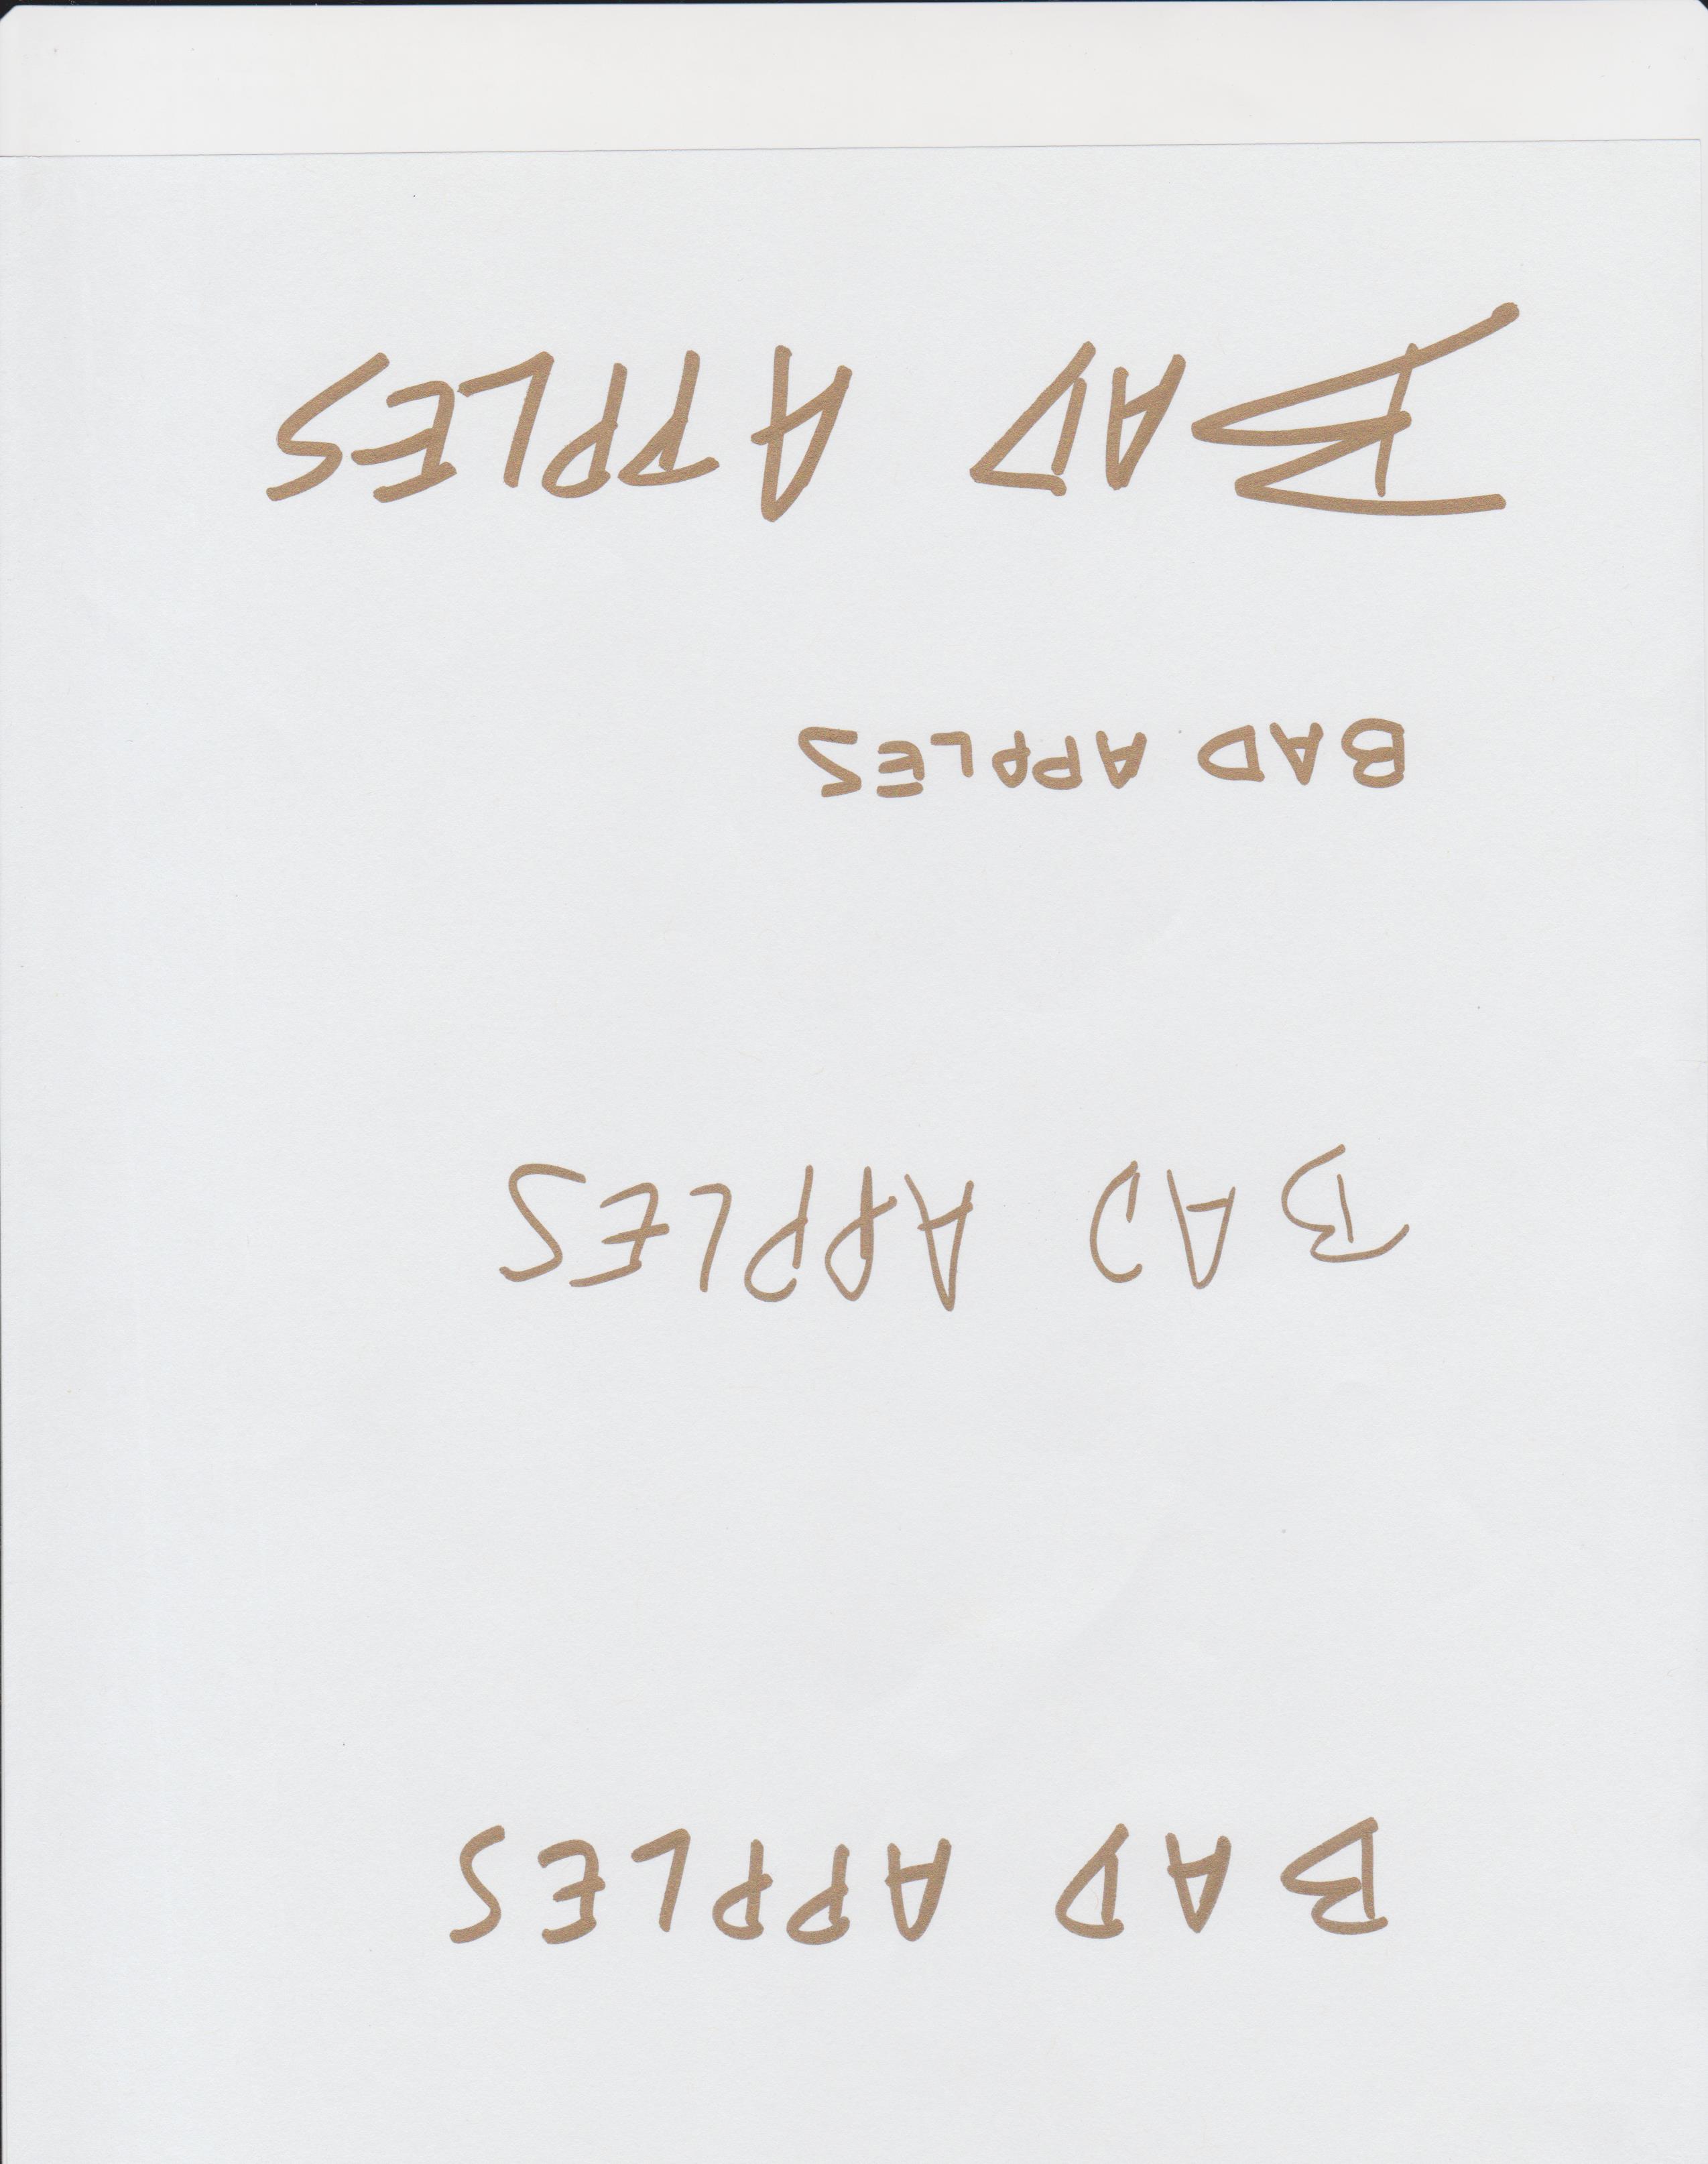 BAD APPLES
BAD APPLES
BAD APPLES
BAD APPLES